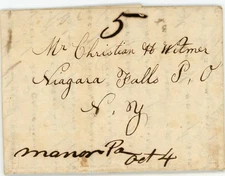 5
Mr Christian H Witmer
Niagara Falls P. O
N. Y
Manor Pa
Oct 4